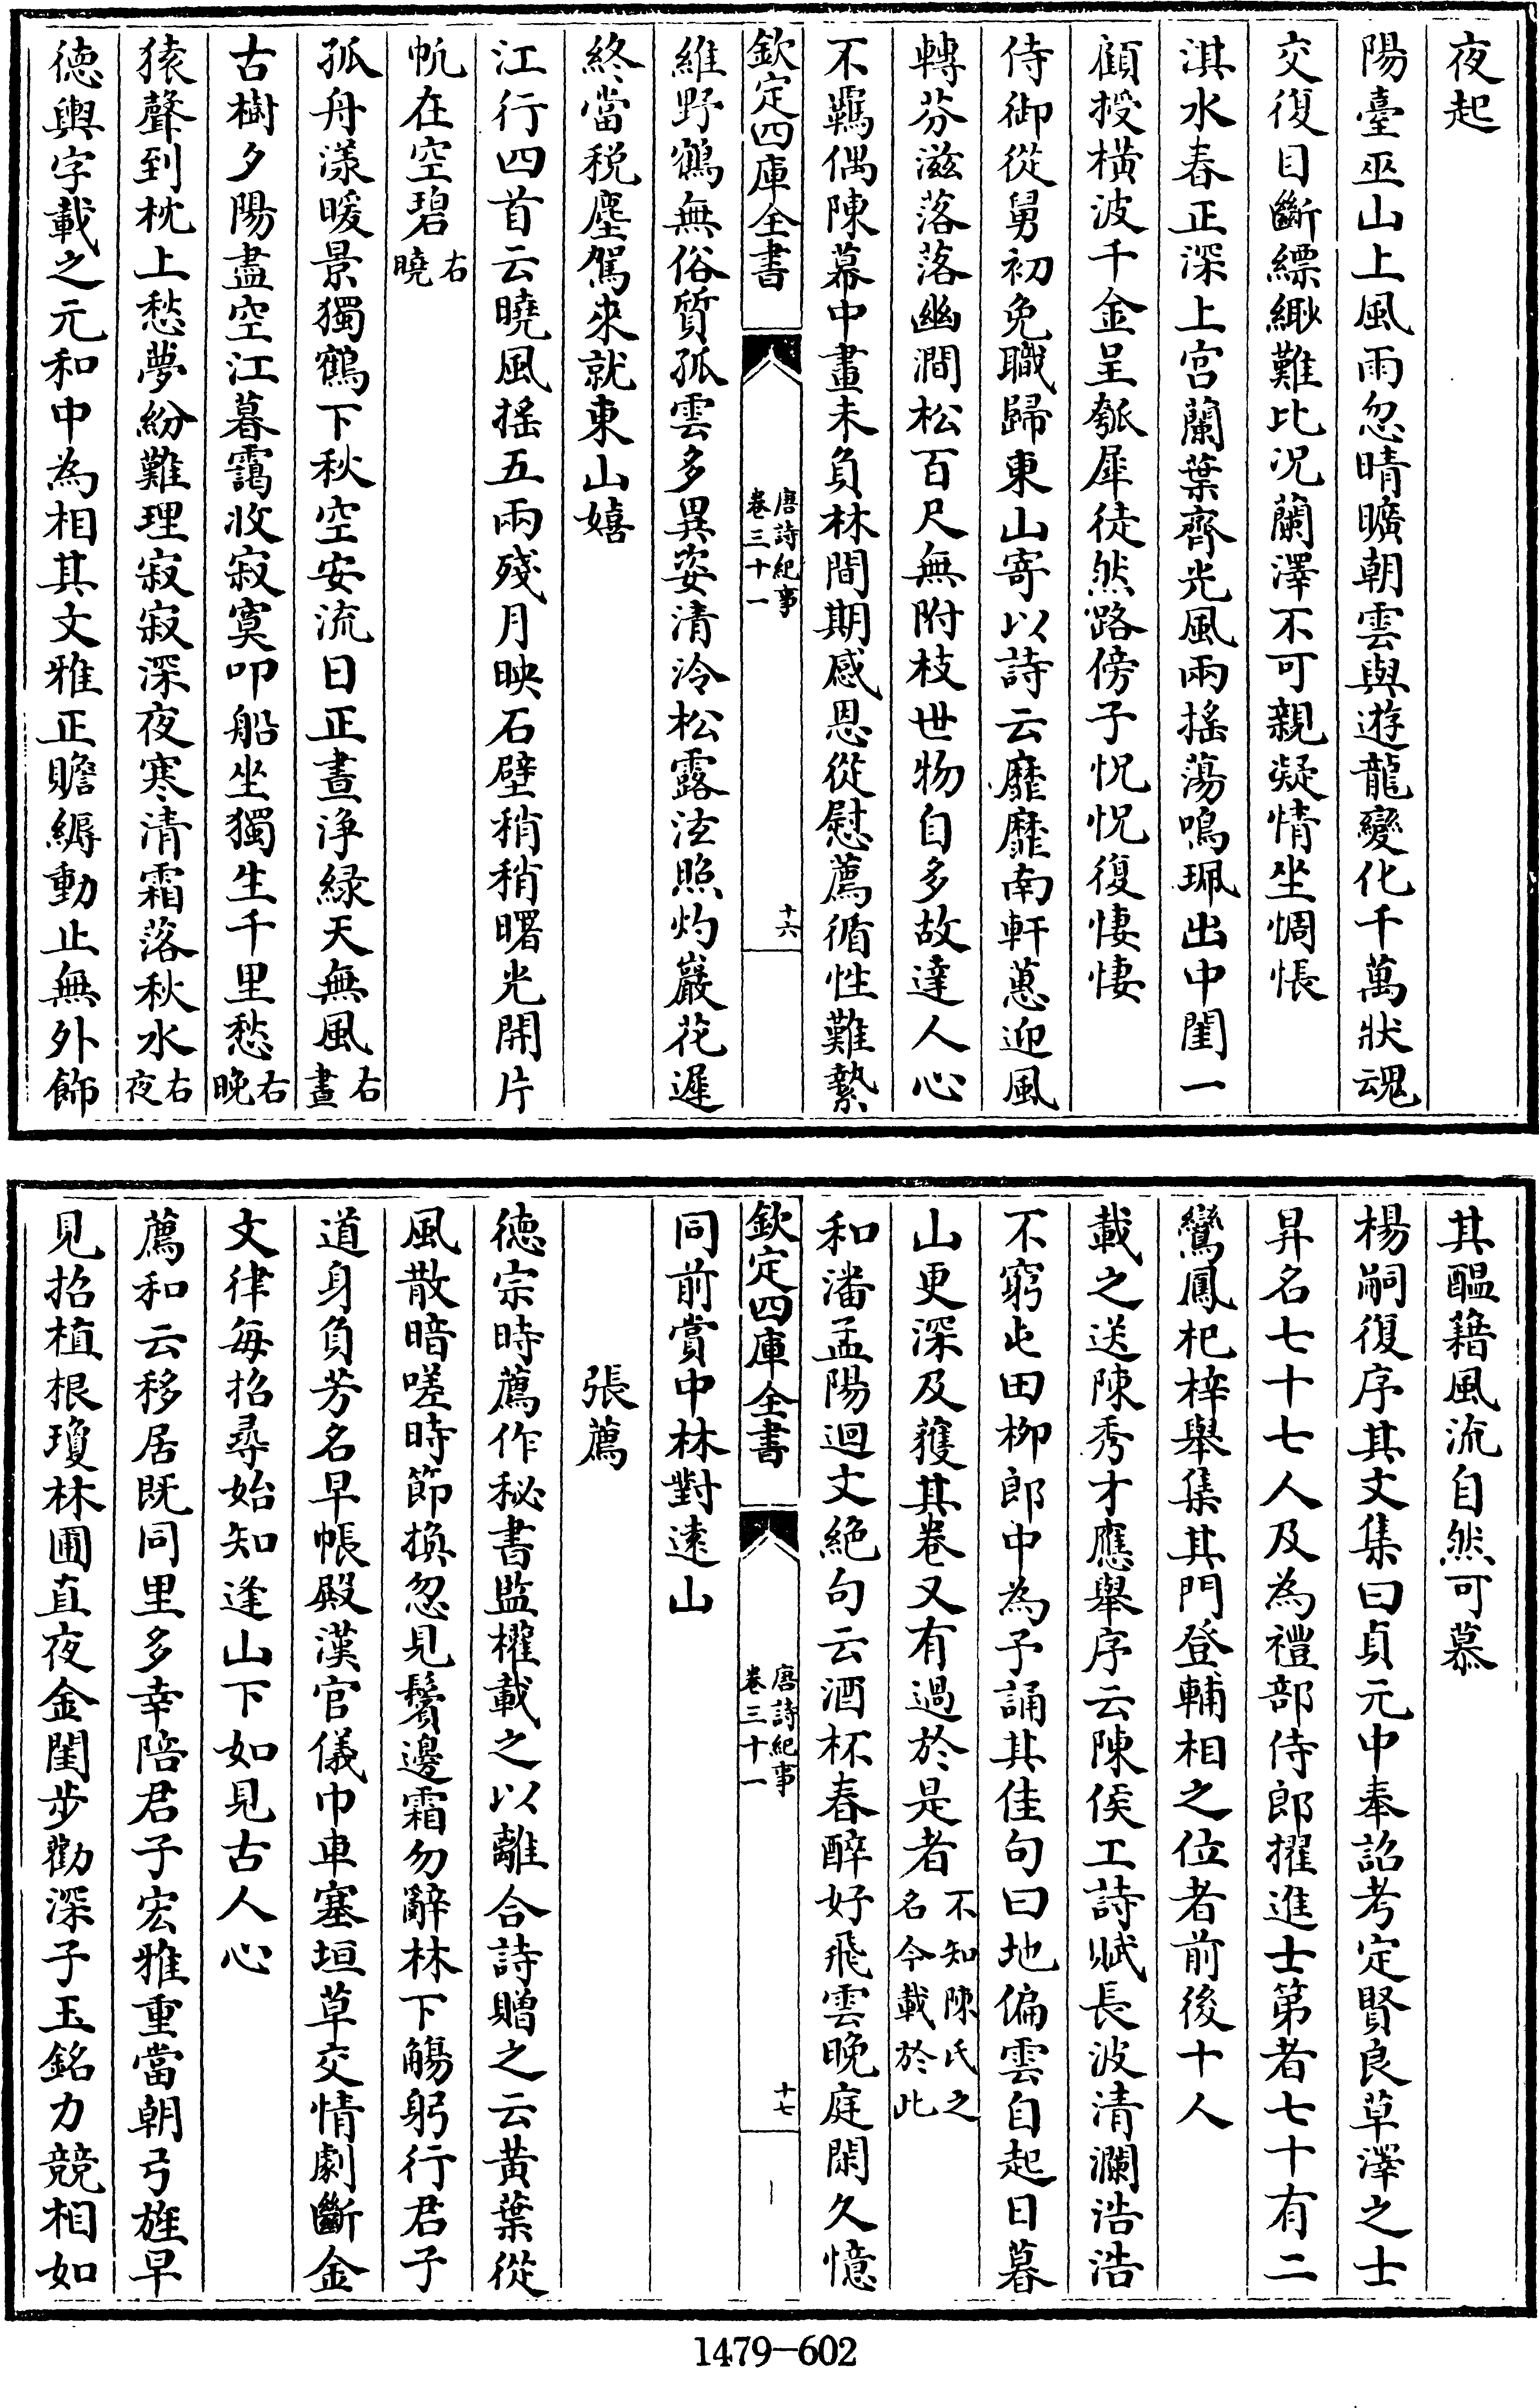 夜起
陽臺巫山上風雨忽晴曠朝雲與遊龍變化千萬狀魂
交復目斷縹緲難比况蘭澤不可親凝情坐惆悵
淇水春正深上宫蘭葉齊光風兩搖蕩鳴珮出中閨一
顧授橫波千金呈瓠犀徒然路傍子怳怳復悽悽
侍御從舅初免職歸東山寄以詩云靡靡南軒蕙迎風
轉芬滋落落幽澗松百尺無附枝世物自多故達人心
不羈偶陳幕中畫未負林間期感恩從慰薦循性難縶
欽定四庫全書
唐詩紀事
卷三十一
十六
維野鶴無俗質孤雲多異姿清泠松露泫照灼巖花遲
終當税塵駕來就東山嬉
江行四首云曉風搖五兩殘月映石壁稍稍曙光開片
帆在空碧右曉
孤舟漾暖景獨鶴下秋空安流日正晝浄緑天無風右晝
古樹夕陽盡空江暮靄收寂寞叩船坐獨生千里愁右晚
猿聲到枕上愁夢紛難理寂寂深夜寒清霜落秋水右夜
德輿字載之元和中為相其文雅正贍縟動止無外飾
其醖籍風流自然可慕
楊嗣復序其文集曰貞元中奉詔考定賢良草澤之士
昇名七十七人及為禮部侍郎擢進士第者七十有二
鸞鳳杞梓舉集其門登輔相之位者前後十人
載之送陳秀才應舉序云陳侯工詩賦長波清瀾浩浩
不窮屯田栁郎中為予誦其佳句曰地偏雲自起日暮
山更深及獲其卷又有過於是者不知陳氏之名今載於此
和潘孟陽迴文絶句云酒杯春醉好飛雲晚庭閑久憶
欽定四庫全書
唐詩紀事
卷三十一
十七
同前賞中林對遠山
張薦
德宗時薦作秘書監權載之以離合詩贈之云黄葉從
風散暗嗟時節換忽見鬢邊霜勿辭林下觴躬行君子
道身負芳名早帳殿漢官儀巾車塞垣草交情劇斷金
文律毎招尋始知逢山下如見古人心
薦和云移居既同里多幸陪君子宏雅重當朝弓旌早
見招植根瓊林圃直夜金閨步勸深子玉銘力競相如
1479-602